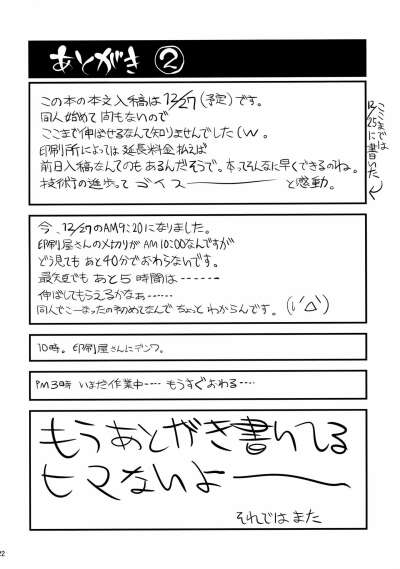 あとがき ②
この本の本文入稿は12/27(予定)です。
同人始めて間もないので
ここまで伸ばせるなんて知りませんでした(w。
印刷所によっては延長料金払えば
前日入稿なんてのもあるんだそうで。本ってそんなに早くできるのね。
技術の進歩ってゴイスーーーーーと感動。
ここまでは
12/25に書いた
今、12/27のAM9:20になりました。
印刷屋さんの〆切りがAM10:00なんですが
どう見てもあと40分でおわらないです。
最大でもあと5時間は-------
伸ばしてもらえるかなぁ------
同人でこーなったの初めてなんでちょっとわからんです。
10時。印刷屋さんにデンワ。
PM3時 いまだ作業中---- もうすぐおわる----
もうあとがき書いてる
ヒマないよーーー
それではまた
22